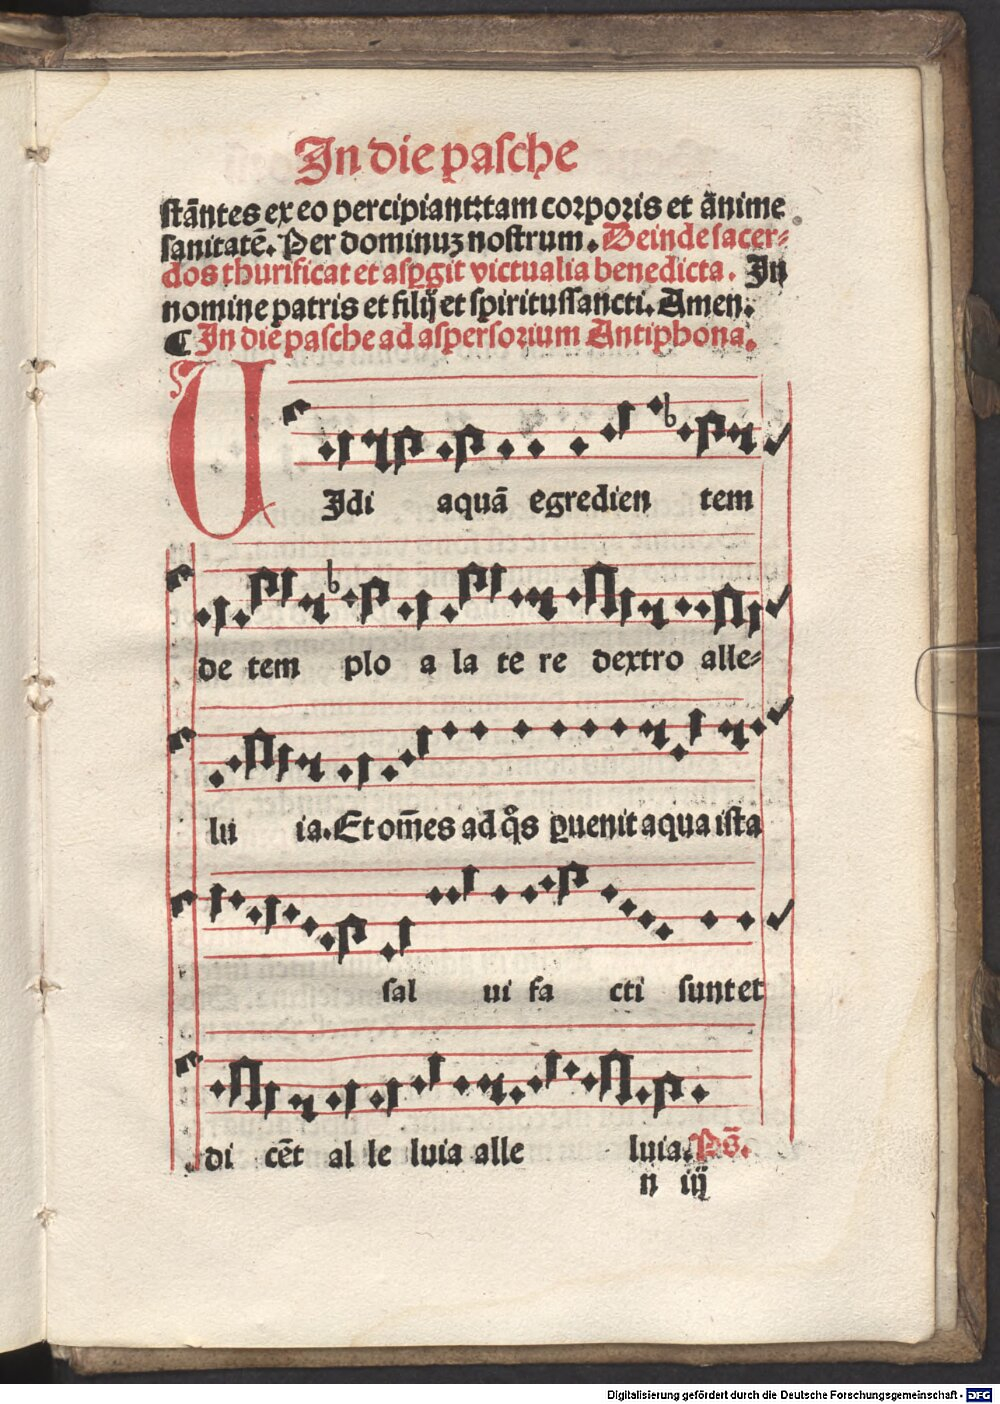 In die pasche
stātes ex eo percipiant: tam corporis et anime
sanitatē. Per dominuʒ nostrum. Deinde sacer-
dos thurificat et asꝑgit victualia benedicta. In
nomine patris et filij et spiritussancti. Amen.
¶ In die pasche ad aspersorium Antiphona.
VIdi aquā egredien tem
de tem plo a la te re dextro alle-
lu ia. Et om̄es ad q̊s ꝑuenit aqua ista
sal ui fa cti sunt et
di cēt al le luia alle luia. Ps̄.
n iij
Digitalisierung gefördert durch die Deutsche Forschungsgemeinschaft - DFG